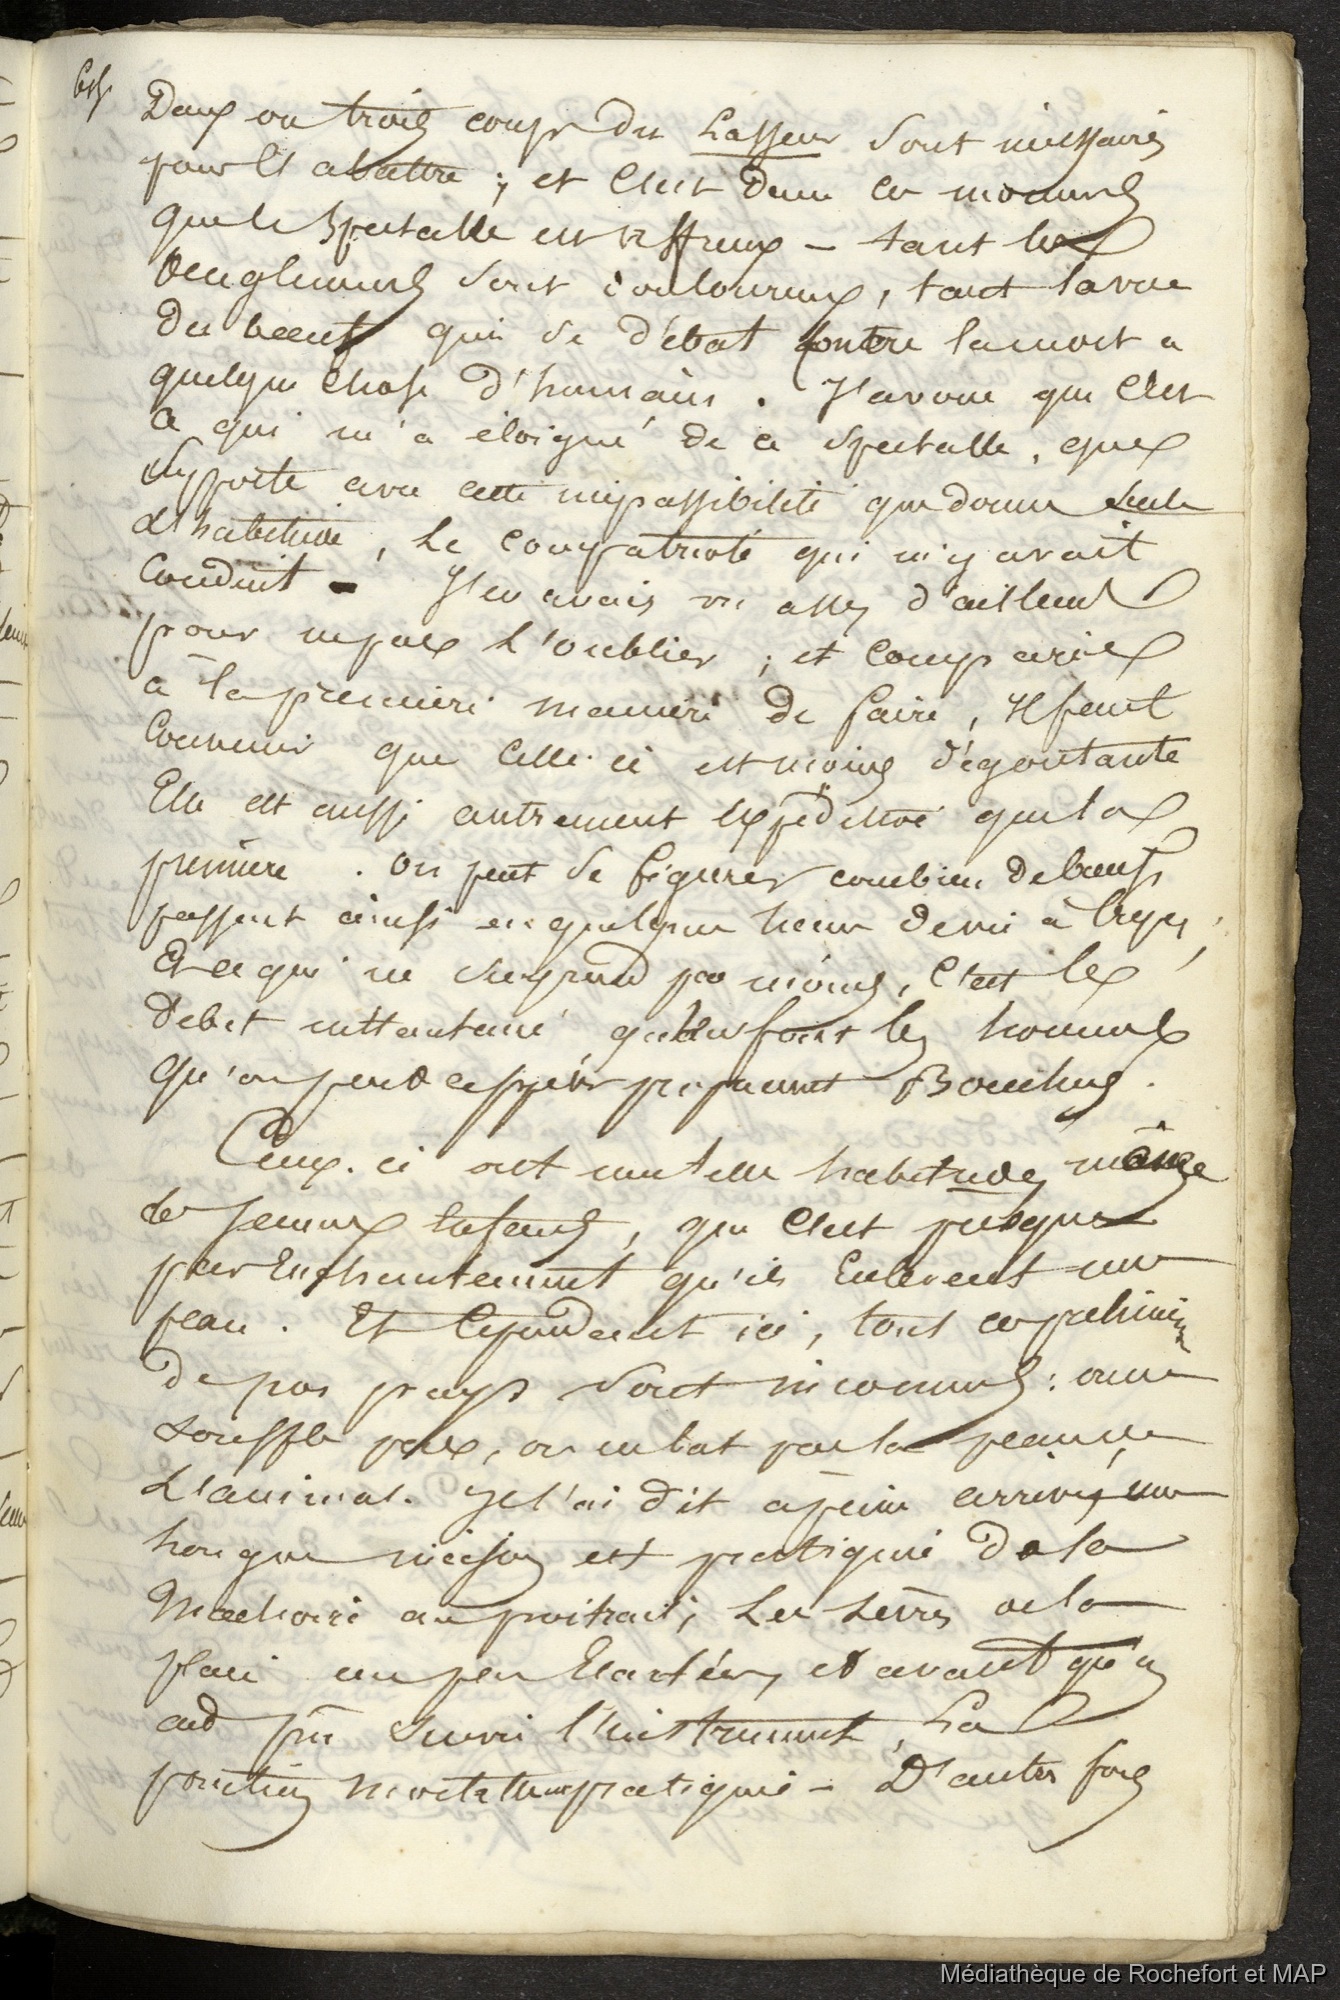 Deux ou trois coups du Lasseur sont nécessaires
pour l'abattre ; et c'est dans ce moment
que le spectacle est affreux — tant les
beuglements sont douloureux, tant la vue
du boeuf qui se débat contre la mort a
quelque chose d'humain. J'avoue que c'est
ce qui m'a éloigné de ce spectacle, que
supporte avec cette impassibilité que donne seule
l'habitude, le compatriote qui m'y avait
conduit — J'en avais vu assez d'ailleurs
pour ne pas l'oublier ; et comparée
à la première manière de faire, Il faut
convenir que celle-ci est moins dégoutante
Elle est aussi autrement expéditive que la
première. On peut se figurer combien de boeufs
passent ainsi en quelques heures de vie à trépas,
Et ce qui ne surprend pas moins, c'est le
débit instantané qu'en font les hommes
qu'on peut appeler proprement Bouchers.
Ceux-ci ont une telle habitude, même
les jeunes enfants, que c'est presque
par Enchantement qu'ils Enlèvent une
peau. Et cependant ici, tous ces préliminaires
de nos pays sont inconnus : on ne
souffle pas, on ne bat pas la peau de
L'animal. Je l'ai dit à peine arrivé, une
longue incision est pratiquée de la
Machoire au poitrail ; Les lèvres de la
plaie un peu Ecartées, et avant qu'on
ait pu suivre l'instrument, La
ponction mortelle est pratiquée — D'autres fois
Médiathèque de Rochefort et MAP